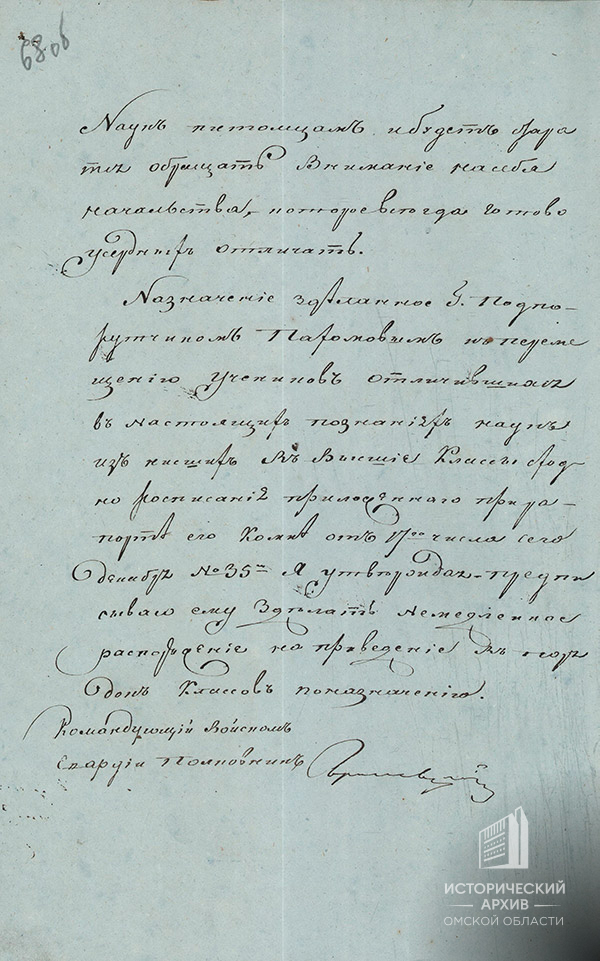 68 об
Наукъ питомцамъ и будетъ стара
тся обращать вниманіе на себя
начальства, которое всегда готово
усердныхъ отличать.
Назначеніе здѣланное Г. Подпо-
рутчикомъ Пахомовымъ к переме
щенію учениковъ отличившихся
въ настоящихъ познаніяхъ наукъ
изъ нисшихъ въ высшіе Классы сход-
но росписанія приложеннаго при ра-
порте его Комнѣ отъ 17го числа сего
декабря № 35м Я утверждая предпи
сываю ему Здѣлать немедленное
распоряженіе на приведеніе въ поря
докъ Классовъ поназначенію.
Командующій Войскомъ
Есаулъ Полковникъ
ИСТОРИЧЕСКИЙ
АРХИВ
ОМСКОЙ ОБЛАСТИ